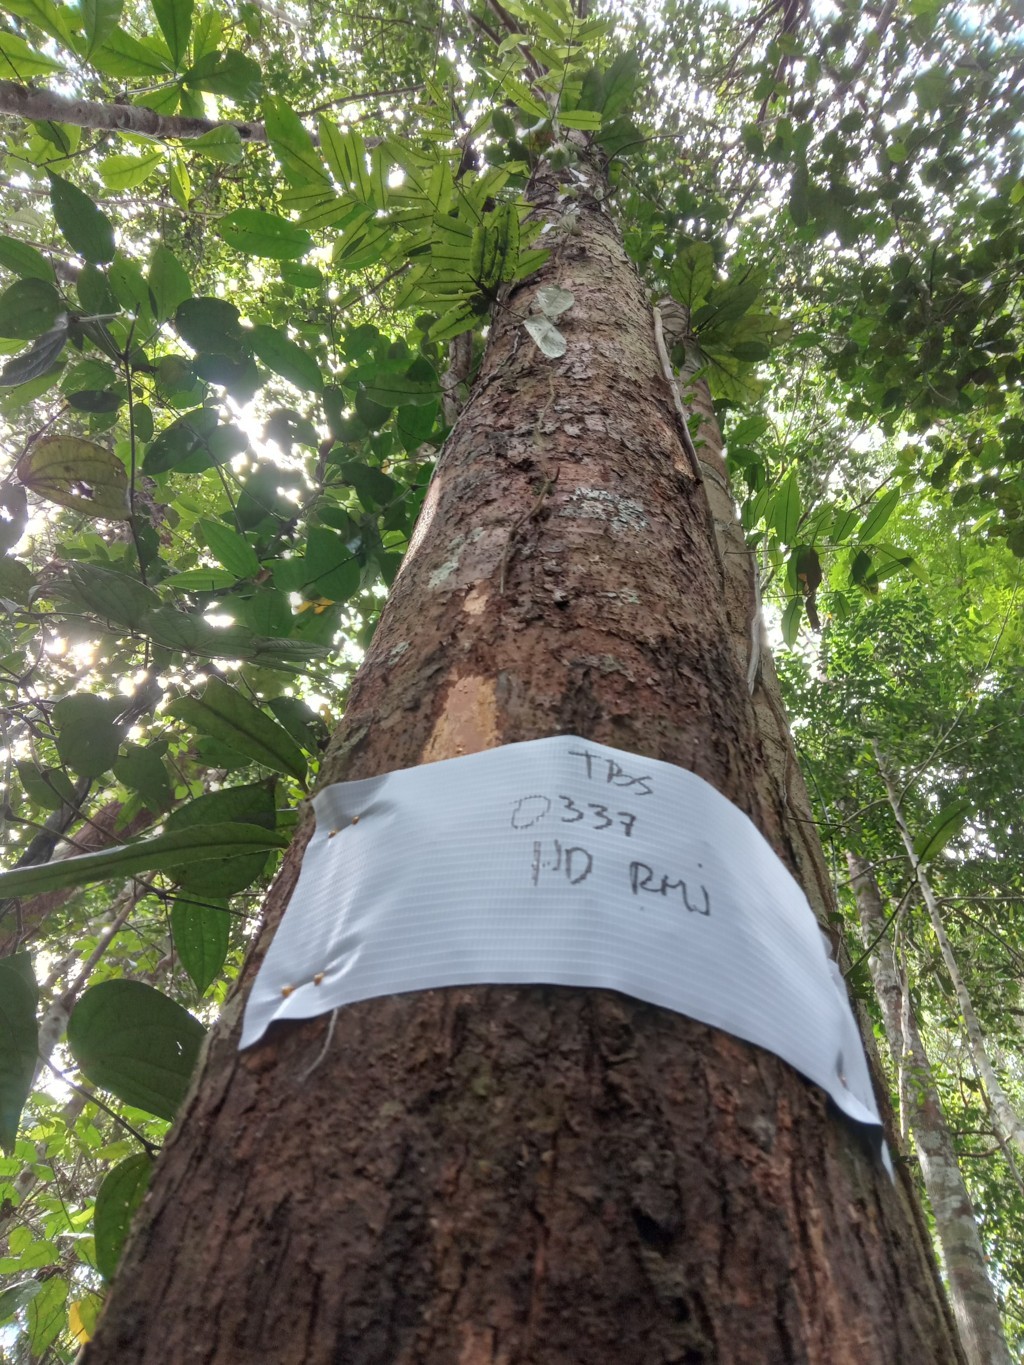 TBS
0337
HD RMJ